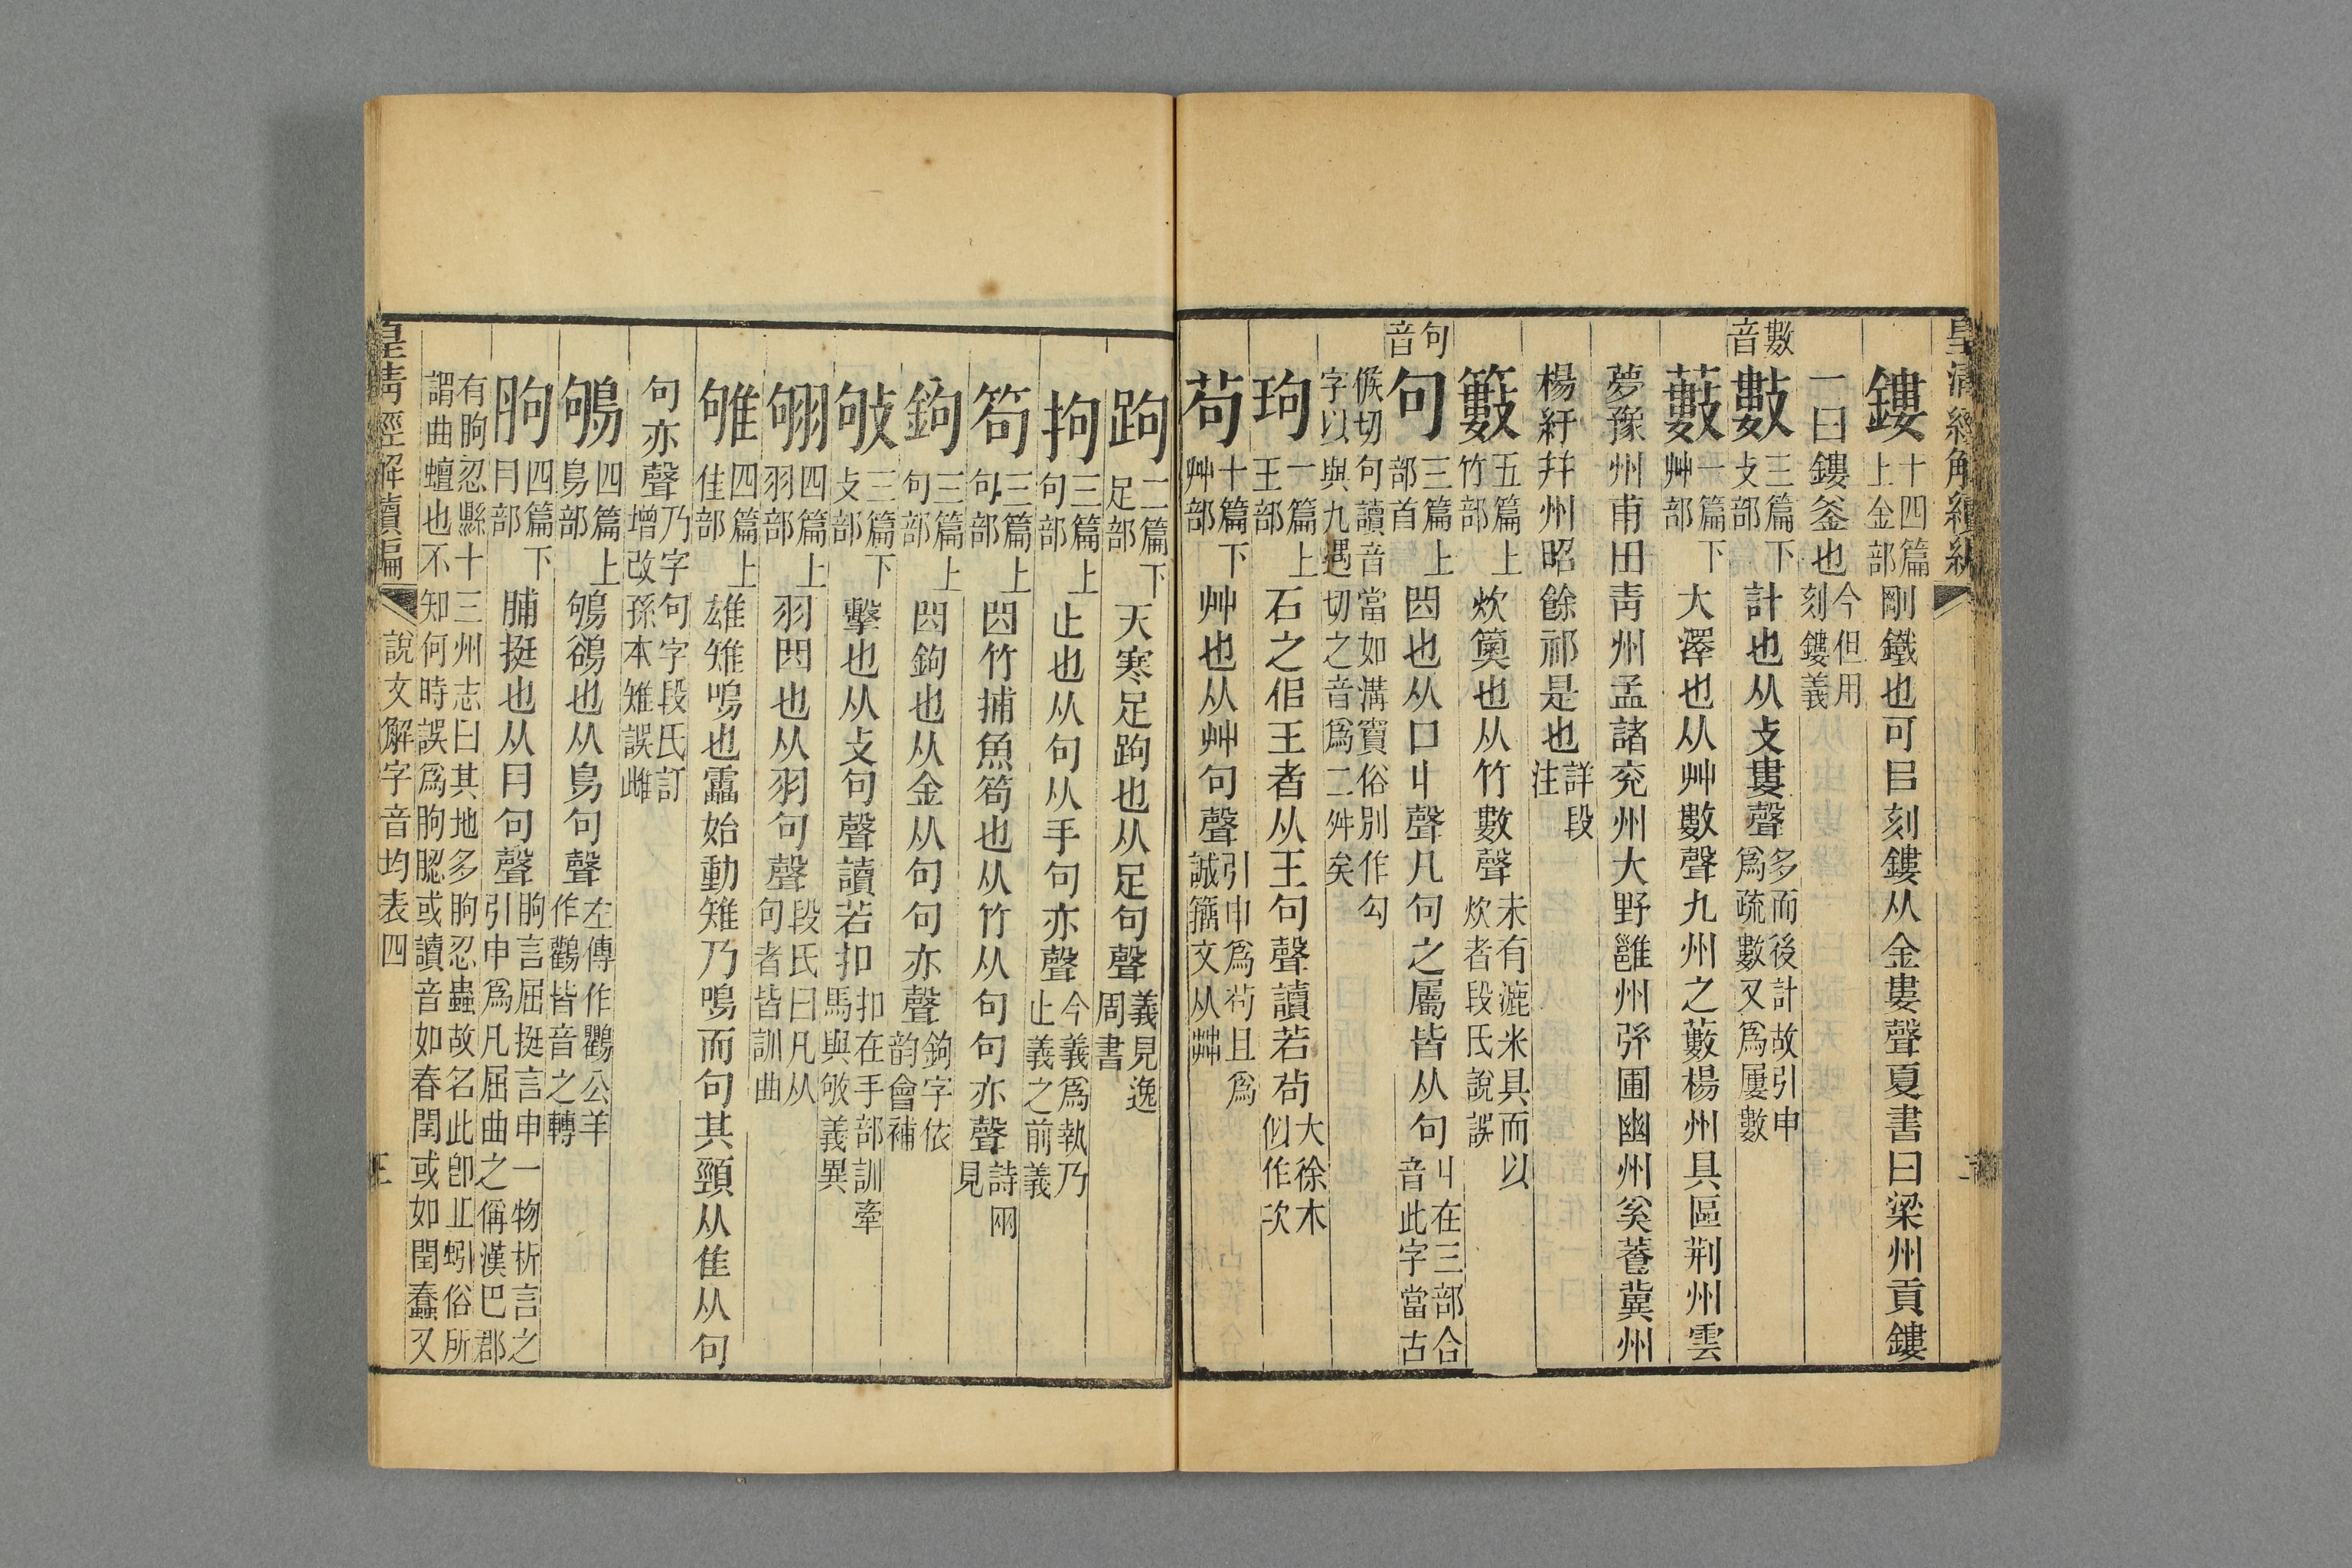 皇清經解續編
鏤十四篇上金部剛鐵也可㠯刻鏤从金婁聲夏書曰梁州貢鏤
一曰鏤釜也今但用刻鏤義
數音
數三篇下攴部計也从攴婁聲多而後計故引申爲疏數又爲屢數
藪一篇下艸部大澤也从艸數聲九州之藪楊州具區荆州雲
夢豫州甫田靑州孟諸兖州大野雝州弦圃幽州奚養冀州
楊紆幷州昭餘祁是也詳段注
籔五篇上竹部炊䉛也从竹數聲未有漉米具而以炊者段氏說誤
句音
句三篇上部首曲也从口丩聲凡句之屬皆从句丩在三部合音此字當古
候切句讀音當如溝竇俗別作勾字以與九遇切之音爲二舛矣
玽一篇上王部石之佀王者从王句聲讀若苟大徐木佀作次
苟十篇下艸部艸也从艸句聲引申爲苟且爲誠籒文从茻
跔二篇下足部天寒足跔也从足句聲義見逸周書
拘三篇上句部止也从句从手句亦聲今義爲執乃止義之前義
笱三篇上句部曲竹捕魚笱也从竹从句句亦聲詩兩見
鉤三篇上句部曲鉤也从金从句句亦聲鉤字依韵會補
敂三篇下攴部擊也从攴句聲讀若扣扣在手部訓牽馬與敂義異
翑四篇上羽部羽曲也从羽句聲段氏曰凡从句者皆訓曲
雊四篇上隹部雄雉鳴也靁始動雉乃鳴而句其頸从隹从句
句亦聲乃字句字段氏訂增改孫本雉誤雌
鴝四篇上鳥部鴝鵒也从鳥句聲左傳作鸜公羊作鸛皆音之轉
朐四篇下肉部脯挺也从肉句聲朐言屈挺言申一物析言之引申爲凡屈曲之偁漢巴郡
有朐忍縣十三州志曰其地多朐忍蟲故名此卽丠蚓俗所謂曲蟺也不知何時誤爲朐䏰或讀音如春閏或如閏蠢又
皇清經解續編
說文解字音均表四